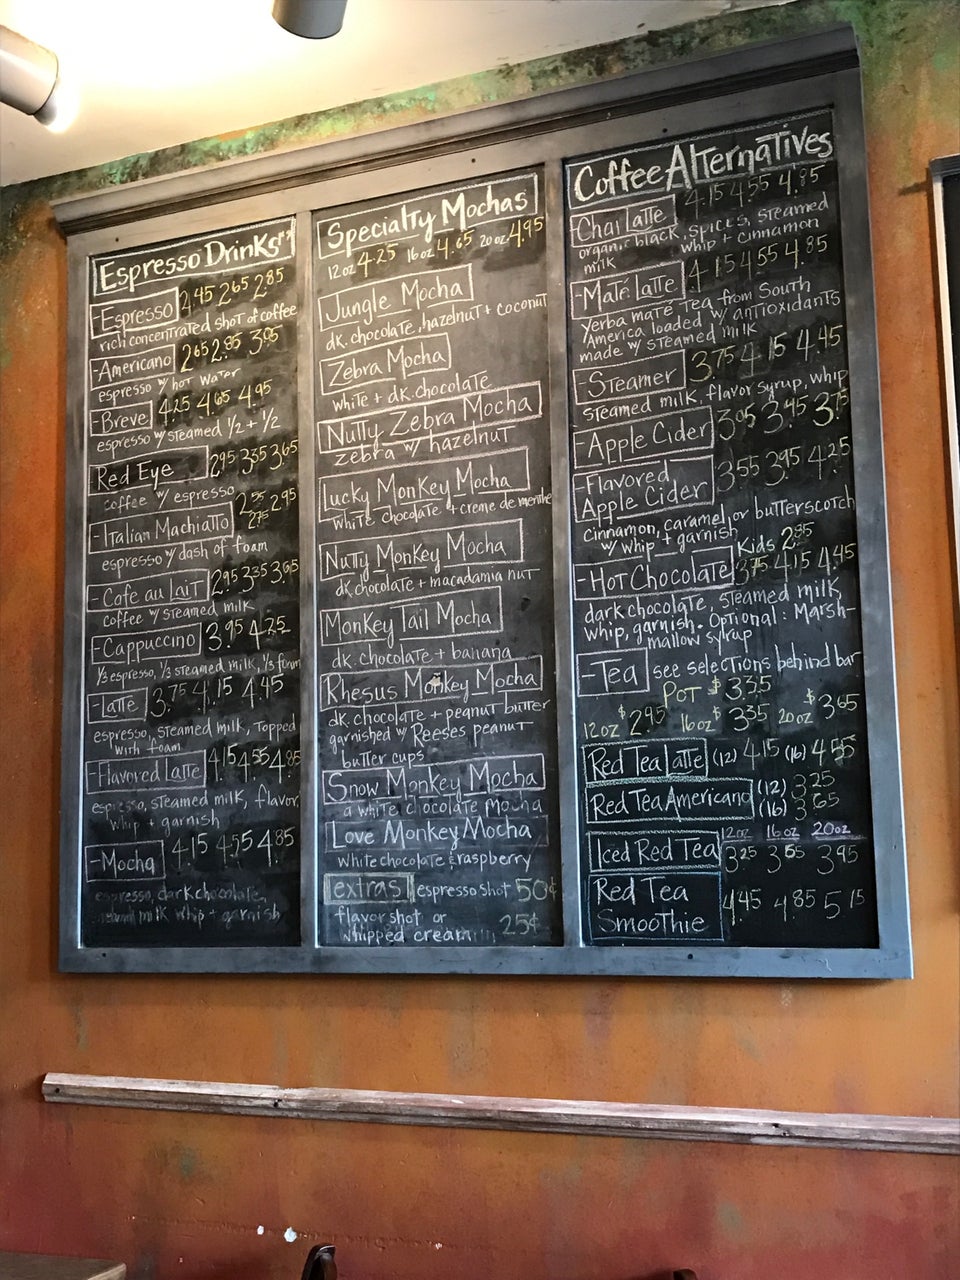 Espresso Drinks
Espresso 2.45 2.65 2.85
rich concentrated shot of coffee
-Americano 2.65 2.85 3.05
espresso w/ hot water
-Breve 4.25 4.65 4.95
espresso w/ steamed 1/2 + 1/2
Red Eye 2.95 3.35 3.65
coffee w/ espresso
-Italian Machiatto 2.55 2.75 2.95
espresso w/ dash of foam
-Cafe au Lait 2.95 3.35 3.65
coffee w/ steamed milk
-Cappuccino 3.95 4.25
1/3 espresso, 1/3 steamed milk, 1/3 foam
-Latte 3.75 4.15 4.45
espresso, steamed milk, topped
with foam
-Flavored Latte 4.15 4.55 4.85
espresso, steamed milk, flavor,
whip + garnish
-Mocha 4.15 4.55 4.85
espresso, dark chocolate,
steamed milk whip + garnish
Specialty Mochas
12oz 4.25 16oz 4.65 20oz 4.95
Jungle Mocha
dk. chocolate, hazelnut + coconut
Zebra Mocha
white + dk. chocolate
Nutty Zebra Mocha
zebra w/ hazelnut
Lucky Monkey Mocha
white chocolate + creme de menthe
Nutty Monkey Mocha
dk chocolate + macadamia nut
Monkey Tail Mocha
dk. chocolate + banana
Rhesus Monkey Mocha
dk. chocolate + peanut butter
garnished w/ Reeses peanut
butter cups
Snow Monkey Mocha
a white chocolate mocha
Love Monkey Mocha
white chocolate & raspberry
extras espresso shot 50¢
flavor shot or
whipped cream 25¢
Coffee Alternatives
Chai Latte 4.15 4.55 4.85
organic black, spices, steamed
milk whip + cinnamon
-Maté Latte 4.15 4.55 4.85
Yerba maté tea from South
America loaded w/ antioxidants
made w/ steamed milk
-Steamer 3.75 4.15 4.45
steamed milk, flavor syrup, whip
-Apple Cider 3.05 3.45 3.75
-Flavored
Apple Cider 3.55 3.95 4.25
cinnamon, caramel, or butterscotch
w/ whip + garnish
Kids 2.85
-Hot Chocolate 3.75 4.15 4.45
dark chocolate, steamed milk,
whip, garnish. Optional: Marsh-
mallow syrup
-Tea see selections behind bar
Pot $3.35
12oz $2.95 16oz $3.35 20oz $3.65
Red Tea Latte (12) 4.15 (16) 4.55
Red Tea Americano (12) 3.25
(16) 3.65
12oz 16oz 20oz
Iced Red Tea 3.25 3.65 3.95
Red Tea
Smoothie 4.45 4.85 5.15